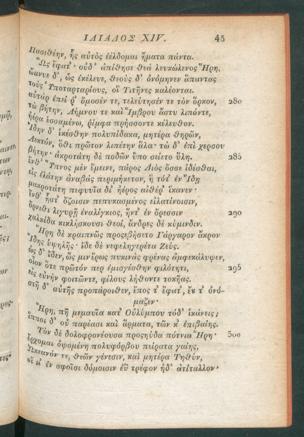 ΙΛΙΑΔΟΣ XIV. 45
Πασιθέην, ἧς αὐτὸς ἐέλδομαι ἤματα πάντα.
Ὣς ἔφατ'· οὐδ' ἀπίθησε θεὰ λευκώλενος Ἥρη,
ὤμνυε δ', ὡς ἐκέλευε, θεοὺς δ' ὀνόμηνεν ἅπαντας
τοὺς Ὑποταρταρίους, οἳ Τιτῆνες καλέονται.
αὐτὰρ ἐπεί ῥ' ὄμοσέν τε, τελεύτησέν τε τὸν ὅρκον, 280
τὼ βήτην, Λήμνου τε καὶ Ἴμβρου ἄστυ λιπόντε,
ἠέρα ἑσσαμένω, ῥίμφα πρήσσοντε κέλευθον.
Ἴδην δ' ἱκέσθην πολυπίδακα, μητέρα θηρῶν,
Λεκτὸν, ὅθι πρῶτον λιπέτην ἅλα· τὼ δ' ἐπὶ χέρσου
βήτην· ἀκροτάτη δὲ ποδῶν ὕπο σείετο ὕλη. 285
ἔνθ' Ὕπνος μὲν ἔμεινε, πάρος Διὸς ὄσσε ἰδέσθαι,
εἰς ἐλάτην ἀναβὰς περιμήκετον, ἣ τότ' ἐν Ἴδῃ
μακροτάτη πεφυυῖα δι' ἠέρος αἰθέρ' ἵκανεν·
ἔνθ' ἧστ' ὄζοισιν πεπυκασμένος εἰλατίνοισιν,
ὄρνιθι λιγυρῇ ἐναλίγκιος, ἥντ' ἐν ὄρεσσιν 290
χαλκίδα κικλήσκουσι θεοί, ἄνδρες δὲ κύμινδιν.
Ἥρη δὲ κραιπνῶς προσεβήσετο Γάργαρον ἄκρον
Ἴδης ὑψηλῆς· ἴδε δὲ νεφεληγερέτα Ζεύς.
ὡς δ' ἴδεν, ὥς μιν ἔρως πυκινὰς φρένας ἀμφεκάλυψεν,
οἷον ὅτε πρῶτόν περ ἐμισγέσθην φιλότητι, 295
εἰς εὐνὴν φοιτῶντε, φίλους λήθοντε τοκῆας.
στῆ δ' αὐτῆς προπάροιθεν, ἔπος τ' ἔφατ', ἔκ τ' ὀνό-
μαζεν·
Ἥρη, πῆ μεμαυῖα κατ' Οὐλύμπου τόδ' ἱκάνεις;
ἵπποι δ' οὐ παρέασι καὶ ἅρματα, τῶν κ' ἐπιβαίης.
Τὸν δὲ δολοφρονέουσα προσηύδα πότνια Ἥρη· 300
ἔρχομαι ὀψομένη πολυφόρβου πείρατα γαίης,
Ὠκεανόν τε, θεῶν γένεσιν, καὶ μητέρα Τηθὺν,
οἵ μ' ἐν σφοῖσι δόμοισιν ἐῢ τρέφον ἠδ' ἀτίταλλον·